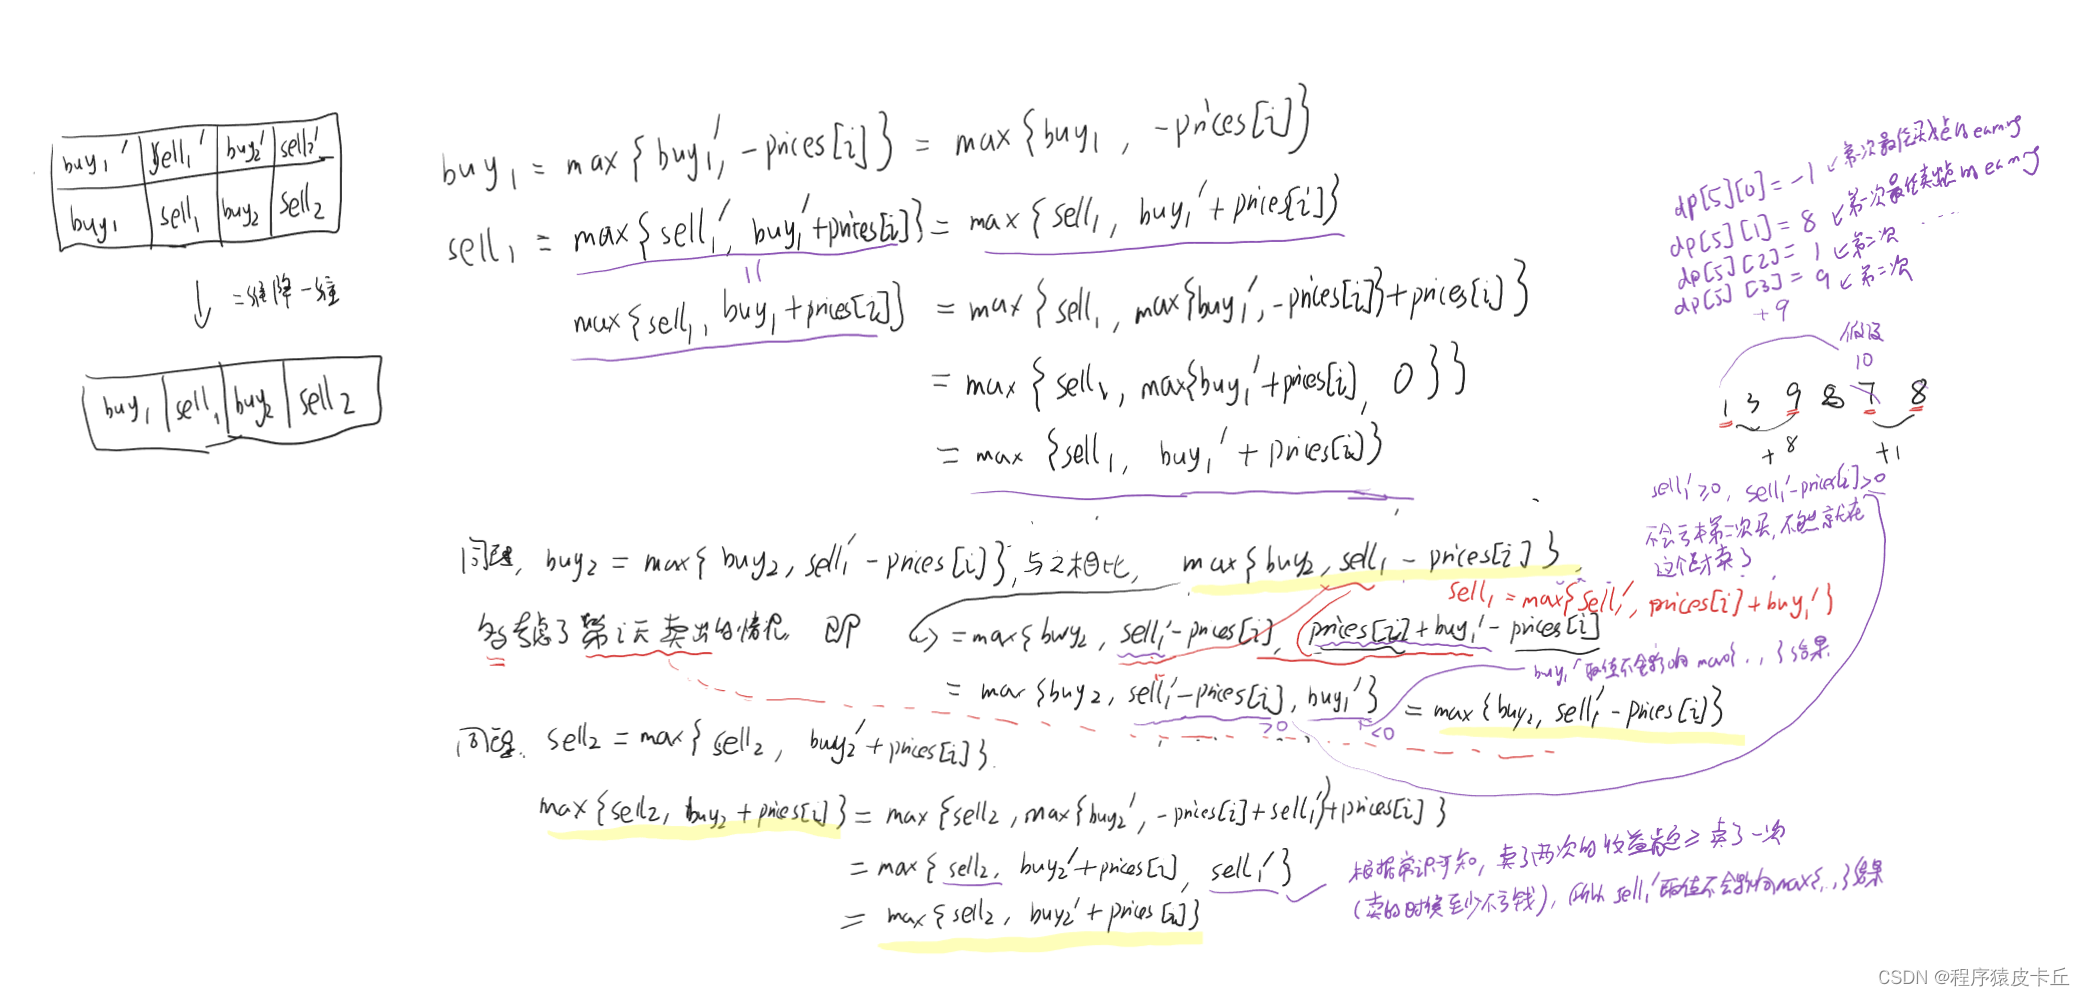 buy₁′ sell₁′ buy₂′ sell₂′
buy₁ sell₁ buy₂ sell₂
↓ 二维降一维
buy₁ sell₁ buy₂ sell₂
buy₁ = max{buy₁′, -prices[i]} = max{buy₁, -prices[i]}
sell₁ = max{sell₁′, buy₁′+prices[i]} = max{sell₁, buy₁′+prices[i]}
max{sell₁, buy₁+prices[i]} = max{sell₁, max{buy₁′, -prices[i]}+prices[i]}
= max{sell₁, max{buy₁′+prices[i], 0}}
= max{sell₁, buy₁′+prices[i]}
dp[5][0] = -1 ↙第一次最佳买点的earning
dp[5][1] = 8 ↙第一次最佳卖点的earning
dp[5][2] = 1 ↙第二次 ....
dp[5][3] = 9 ↙第二次
+9
假设
10
1 3 9 8 7 8
+8 +1
sell₁′≥0, sell₁′-prices[i]>0
不会亏本第二次买,不然就在
这个时卖了
同理, buy₂ = max{buy₂, sell₁′-prices[i]}, 与之相比, max{buy₂, sell₁-prices[i]},
sell₁ = max{sell₁′, prices[i]+buy₁′}
考虑了第i天卖出的情况, 即 = max{buy₂, sell₁′-prices[i], prices[i]+buy₁′-prices[i]
buy₁′取值不会影响max{.,.,}结果
= max{buy₂, sell₁′-prices[i], buy₁′} = max{buy₂, sell₁′-prices[i]}
>0 <0
同理. sell₂ = max{sell₂, buy₂′+prices[i]}.
max{sell₂, buy₂+prices[i]} = max{sell₂, max{buy₂′, -prices[i]+sell₁′}+prices[i]}
= max{sell₂, buy₂′+prices[i], sell₁′}
= max{sell₂, buy₂′+prices[i]}
根据常识可知, 卖了两次的收益肯定≥卖了一次
(卖的时候至少不亏钱), 所以sell₁′取值不会影响max{.,.,}结果
CSDN @程序猿皮卡丘